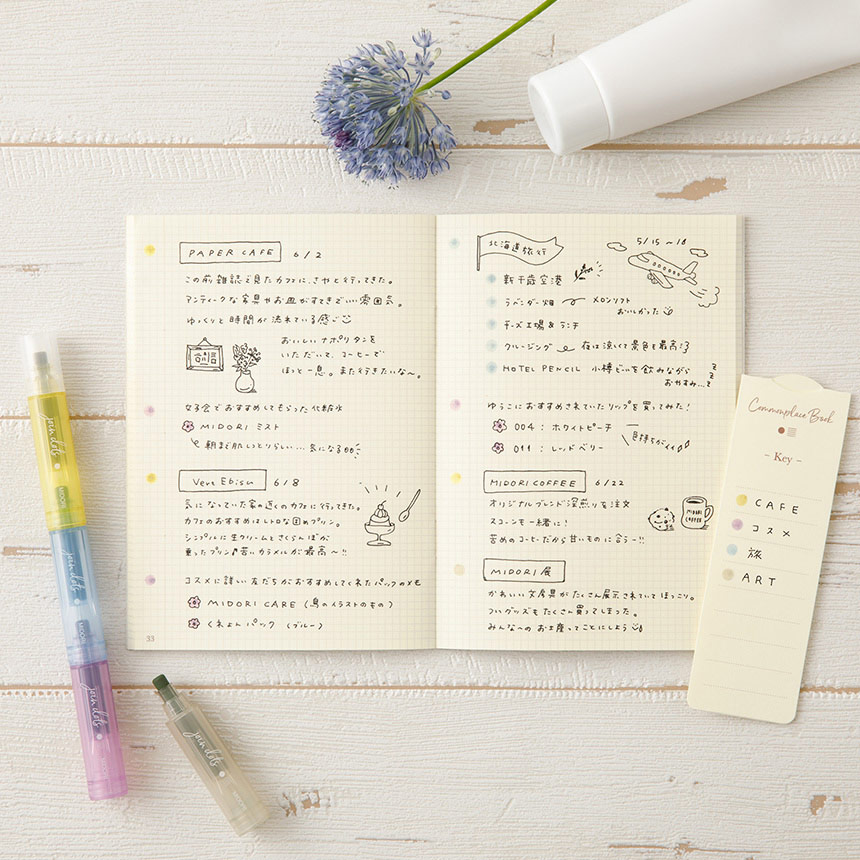 PAPER CAFE 6/2
この前雑誌で見たカフェに、さやと行ってきた。
アンティークな家具やお皿がすてきでいい雰囲気。
ゆっくりと時間が流れている感じ
おいしいナポリタンを
いただいて、コーヒーで
ほっと一息。また行きたいな〜。
女子会でおすすめしてもらった化粧水
MIDORI ミスト
朝まで肌しっとりらしい…気になる
Vere Ebisu 6/8
気になっていた家の近くのカフェに行ってきた。
カフェのおすすめはレトロな固めプリン。
シンプルに生クリームとさくらんぼが
乗ったプリン♪苦いカラメルが最高〜!!
コスメに詳しい友だちがおすすめしてくれたパックのメモ
MIDORI CARE (鳥のイラストのもの)
くれよんパック (ブルー)
33
北海道旅行
5/15 〜
新千歳空港
ラベンダー畑 メロンソフト
おいしかった
チーズ工場 & ランチ
クルージング 夜は涼しくて景色も最高
HOTEL PENCIL 小樽ビールを飲みながら
おやすみ...z
z
z
ゆうこにおすすめされていたリップを買ってみた!
004 : ホワイトピーチ
011 : レッドベリー
色持ちがイイ
MIDORI COFFEE 6/22
オリジナルブレンド深煎りを注文
スコーンも一緒に!
苦めのコーヒーだから甘いものに合う〜!!
MIDORI
COFFEE
MIDORI 展
かわいい文房具がたくさん展示されていてほっこり。
ついグッズもたくさん買ってしまった。
みんなへのお土産ってことにしよう
Commonplace Book
- Key -
CAFE
コスメ
旅
ART
join dots
MIDORI
join dots
MIDORI
join dots
MIDORI
join dots